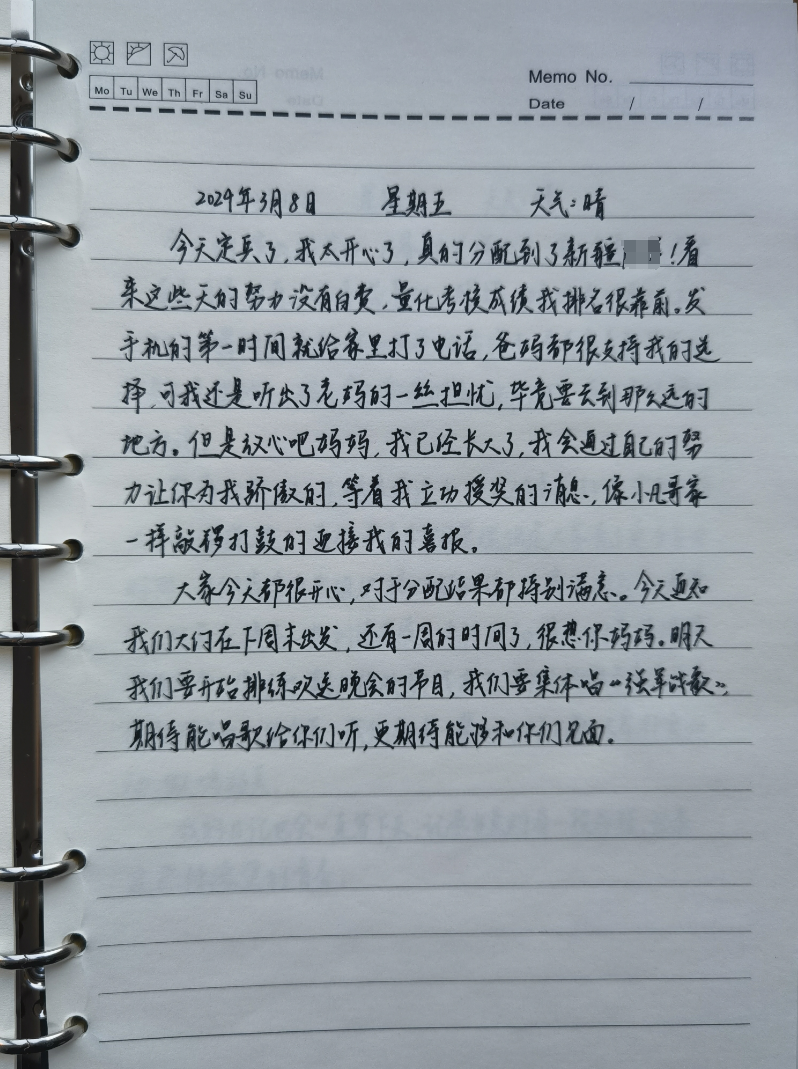 Memo No.
Mo Tu We Th Fr Sa Su
Date / /
2024年3月8日 星期五 天气:晴
今天定兵了,我太开心了,真的分配到了新疆!看
来这些天的努力没有白费,量化考核成绩我排名很靠前。发
手机的第一时间就给家里打了电话,爸妈都很支持我的选
择,可我还是听出了老妈的一丝担忧,毕竟要去到那么远的
地方。但是放心吧妈妈,我已经长大了,我会通过自己的努
力让你为我骄傲的,等着我立功授奖的消息,像小凡哥家
一样敲锣打鼓的迎接我的喜报。
大家今天都很开心,对于分配结果都特别满意。今天通知
我们大约在下周末出发,还有一周的时间了,很想你妈妈。明天
我们要开始排练欢送晚会的节目,我们要集体唱《强军战歌》,
期待能唱歌给你们听,更期待能够和你们见面。